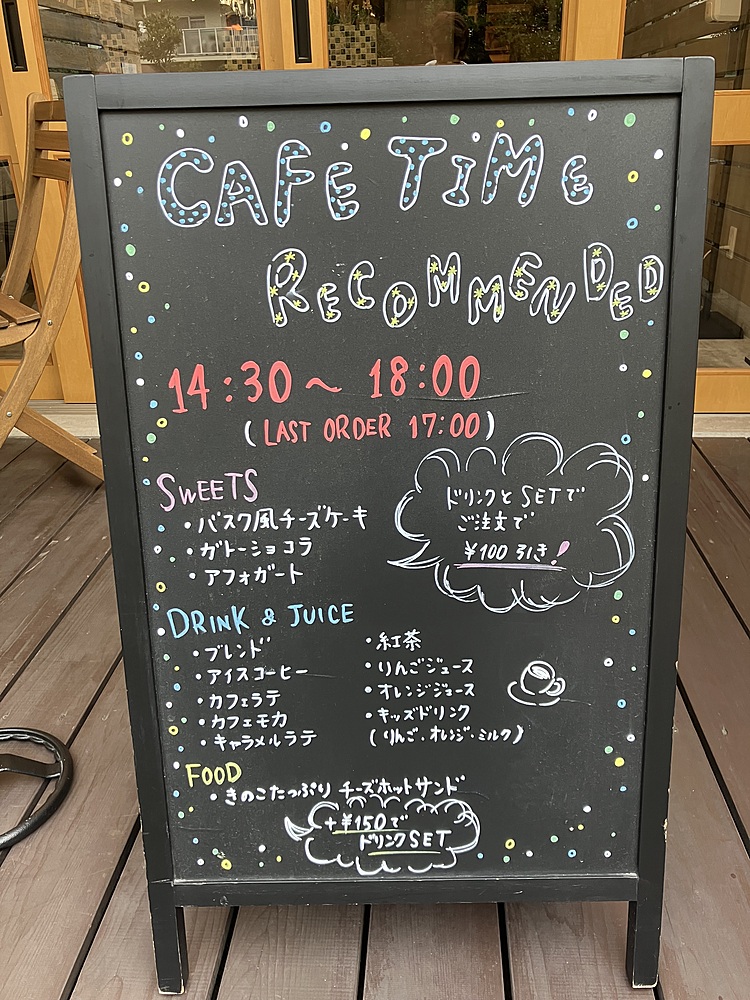 CAFE TIME
RECOMMENDED
14:30〜 18:00
(LAST ORDER 17:00)
SWEETS
・バスク風チーズケーキ
・ガトーショコラ
・アフォガート
ドリンクとSETで
ご注文で
¥100引き!
DRINK & JUICE
・ブレンド
・アイスコーヒー
・カフェラテ
・カフェモカ
・キャラメルラテ
・紅茶
・りんごジュース
・オレンジジュース
・キッズドリンク
(りんご・オレンジ・ミルク)
FOOD
・きのこたっぷり チーズホットサンド
+¥150で
ドリンクSET